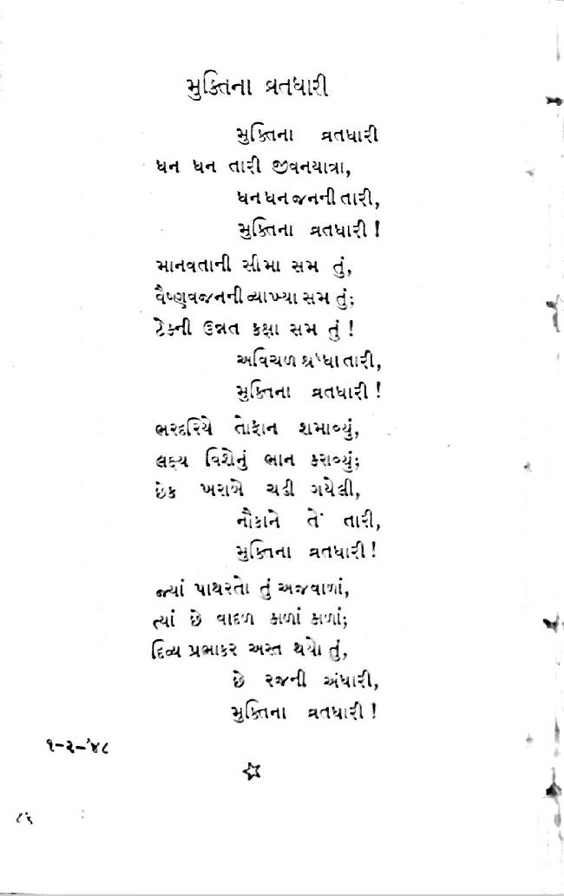 મુક્તિના વ્રતધારી
મુક્તિના વ્રતધારી
ધન ધન તારી જીવનયાત્રા,
ધન ધન જનની તારી,
મુક્તિના વ્રતધારી !
માનવતાની સીમા સમ તું,
વૈષ્ણવજનની વ્યાખ્યા સમ તું;
ટેકની ઉન્નત કક્ષા સમ તું !
અવિચળ શ્રધ્ધા તારી,
મુક્તિના વ્રતધારી !
ભરદરિયે તોફાન શમાવ્યું,
લક્ષ્ય વિશેનું ભાન કરાવ્યું;
છેક ખરાબે ચડી ગયેલી,
નૌકાને તેં તારી,
મુક્તિના વ્રતધારી !
જ્યાં પાથરતો તું અજવાળાં,
ત્યાં છે વાદળ કાળાં કાળાં;
દિવ્ય પ્રભાકર અસ્ત થયો તું,
છે રજની અંધારી,
મુક્તિના વ્રતધારી !
૧-૨-'૪૮